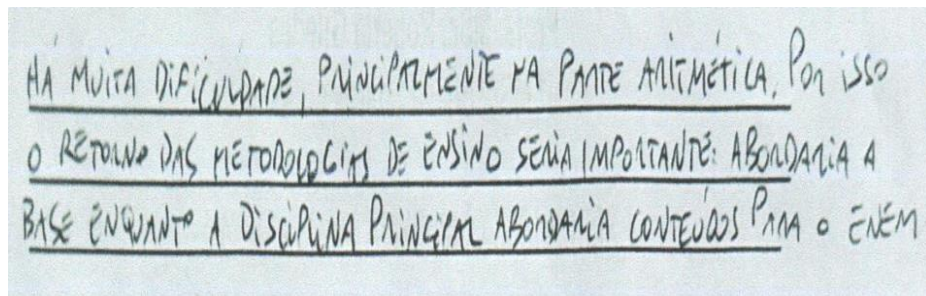 HÁ MUITA DIFICULDADE, PRINCIPALMENTE NA PARTE ARITMÉTICA. POR ISSO
O RETORNO DAS METODOLOGIAS DE ENSINO SERIA IMPORTANTE: ABORDARIA A
BASE ENQUANTO A DISCIPLINA PRINCIPAL ABORDARIA CONTEÚDOS PARA O ENEM